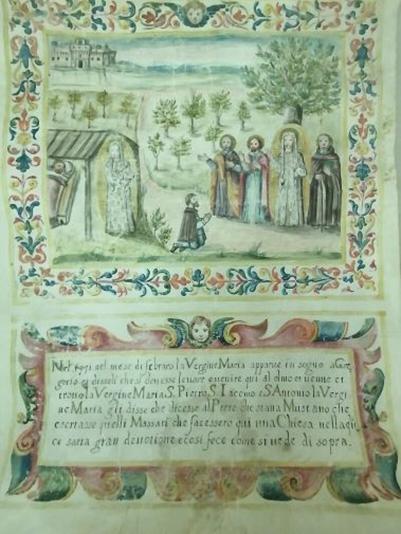 Nel 1571 nel mese di febraro la Vergine Maria apparue in sogno a Gre
gorio et dissoli che si douesse leuare e uenire qui al olmo et uenne et
trouo la Vergine Maria S. Pietro S. Iacomo e S. Antonio la Vergi
ne Maria gli disse che dicesse al Prete che staua Mus ano che
quelli Massari che facessero qui una Chiesa nella
ci saria gran deuotione e cosi fece come si uede di sopra.